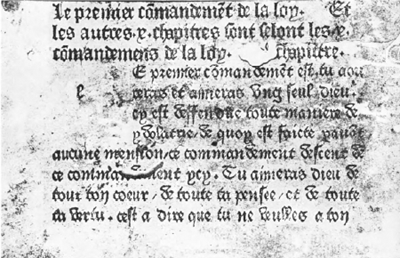 Le premier cōmandemēt de la loy. Et
les autres .x. chapitres sont selont les .x.
cōmandemens de la loy. chapittre.
E premier cōmandemēt est. tu aou
l reras et aimeras vng seul dieu.
cy est deffendue toute maniere de
ydolatrie de quoy est faicte pauāt
aucune mension. ce commandement descent de
ce commandement ycy. Tu aimeras dieu de
tout ton coeur / de toute ta pensee / et de toute
ta vertu. cest a dire que tu ne veulles a ton